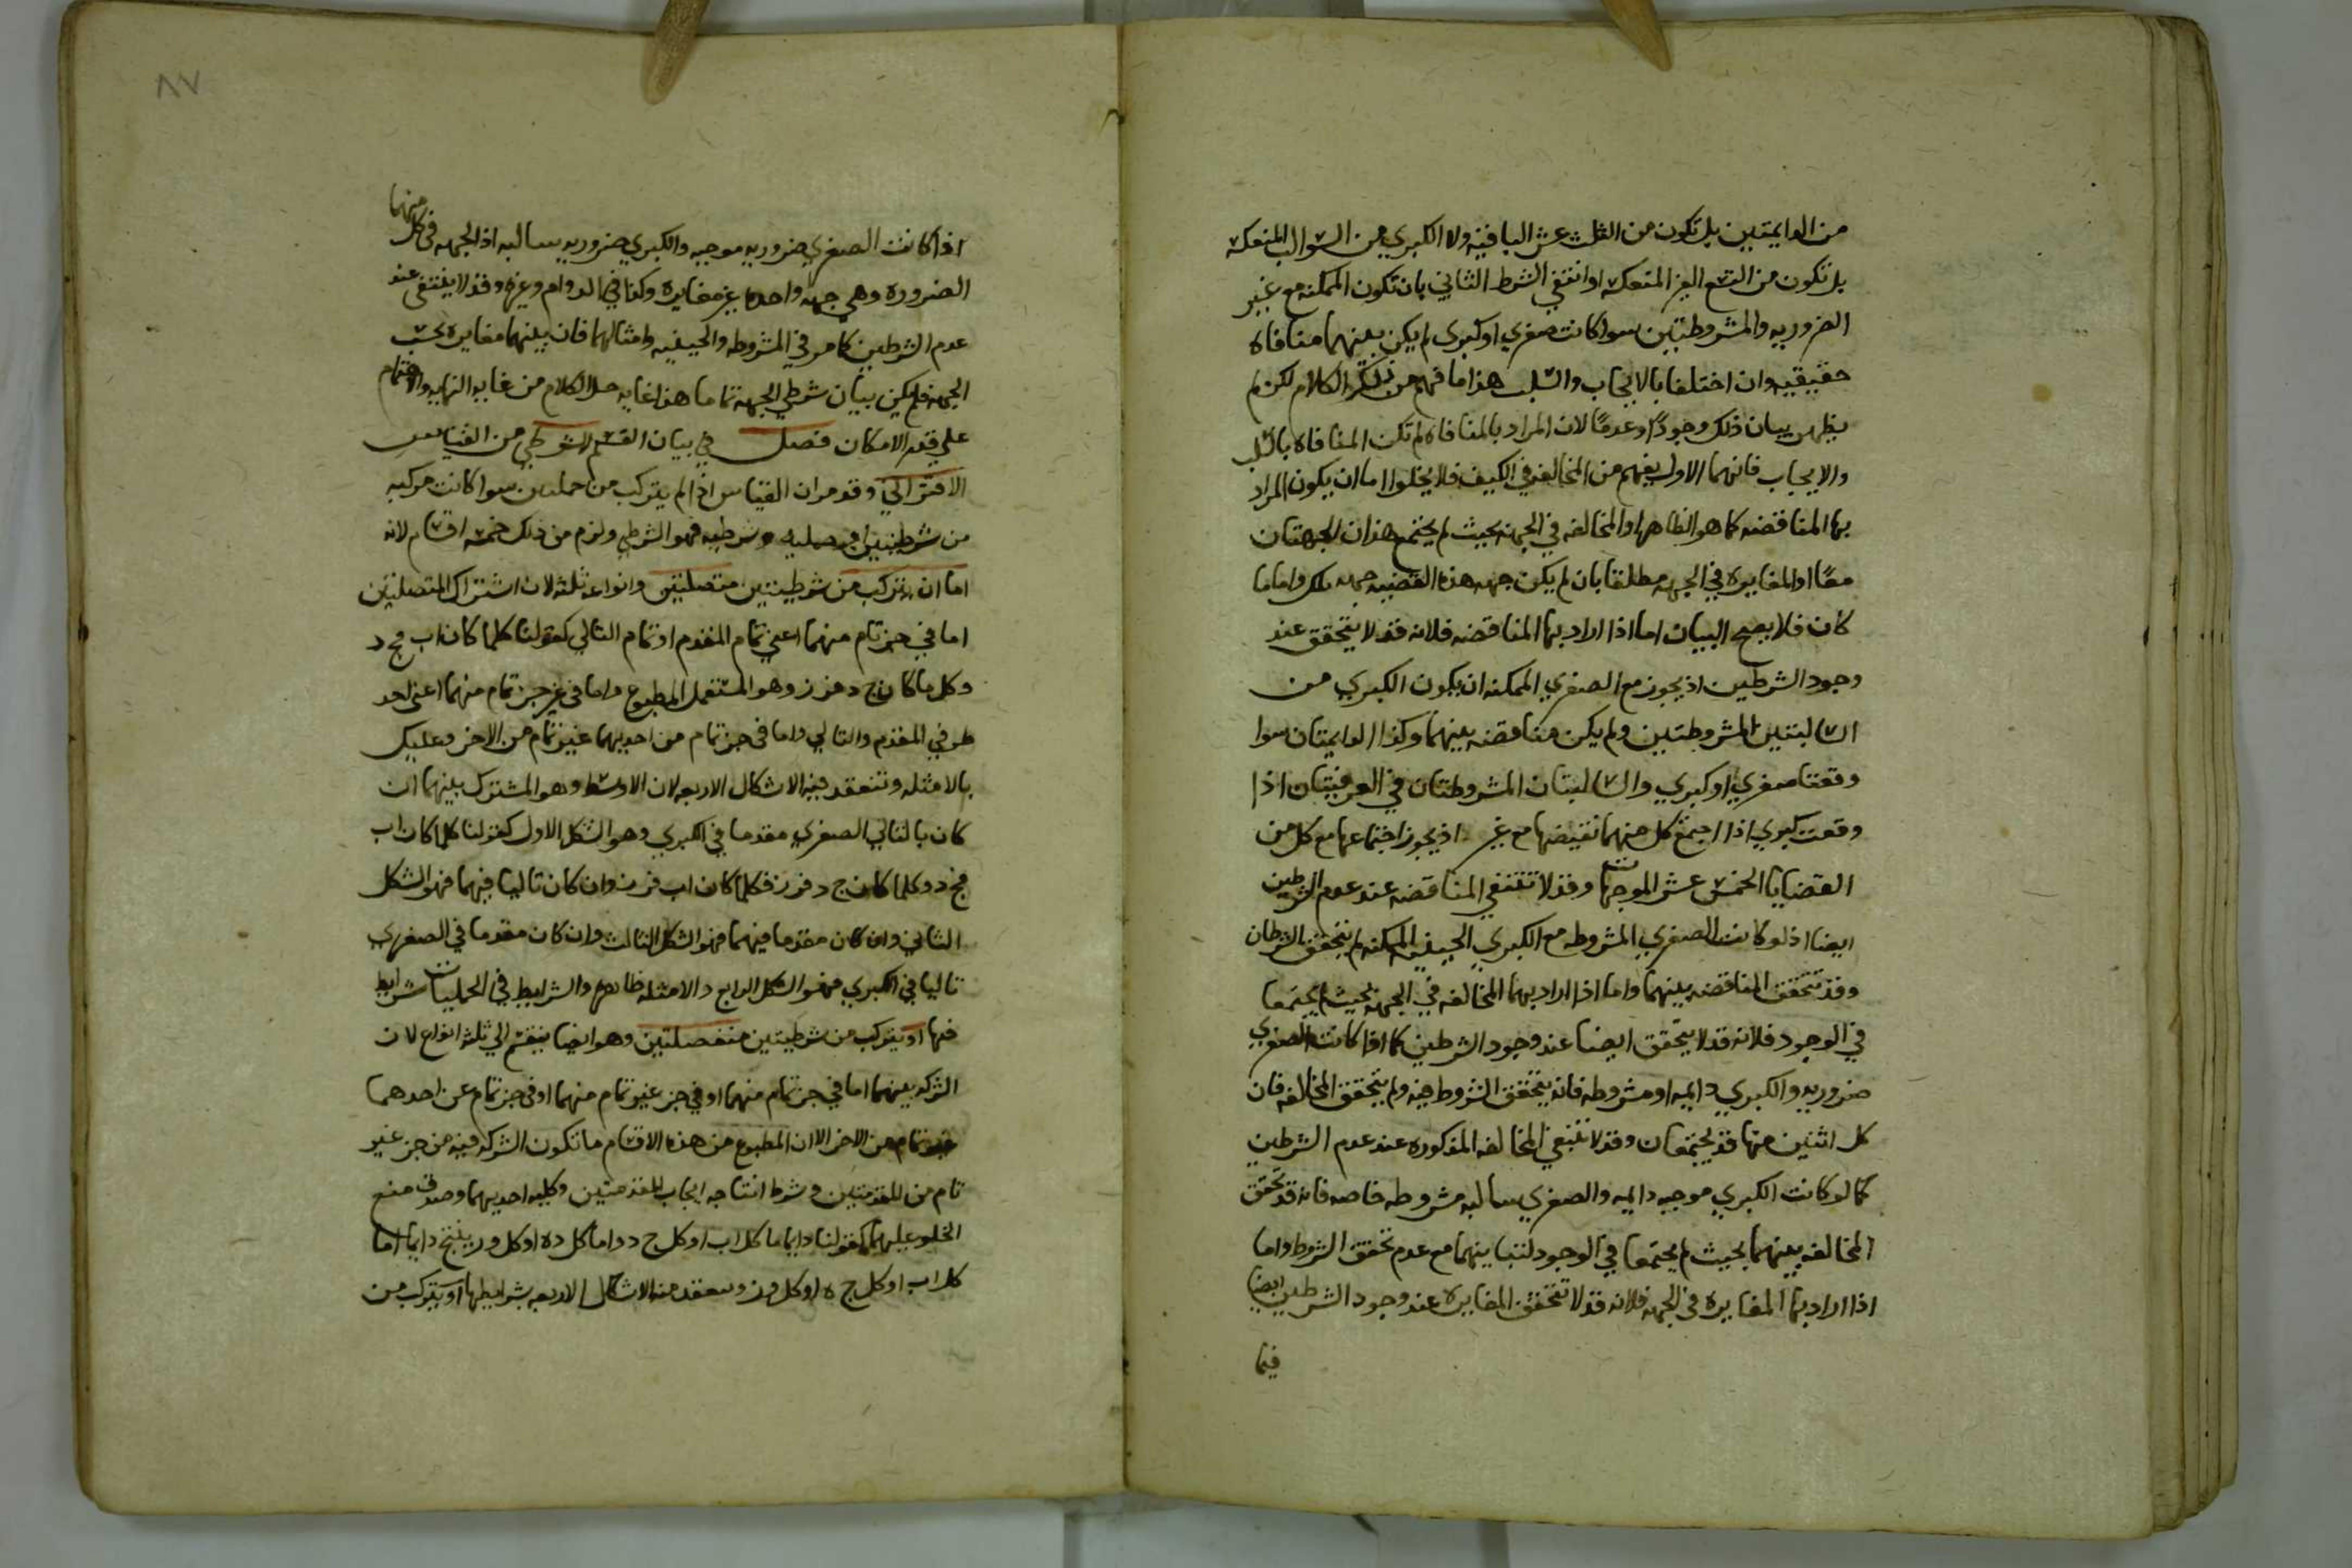 من الدايمتين بل تكون من الثلث عشر الباقية ولا الكبري من السوالب المنعكسه
بل تكون من التسع الغير المنعكسه او انتفي الشرط الثاني بان تكون الممكنه مع غير
الضروريه والمشروطتين سوا كانت صغري او كبري لم يكن بينهما منافاه
حقيقيه وان اختلفا بالايجاب والسلب هذا ما فهم من ذلك الكلام لكن لم
يظهر بيان ذلك وجودًا وعدمًا لان المراد بالمنافاه لم تكن المنافاه بالسلب
والايجاب فانهما الاول يفهم من المخالفه في الكيف فلا يخلوا اما ان يكون المراد
بها المناقضه كما هو الظاهر او المخالفه في الجهه بحيث لم يجتمع هذان الجهتان
معًا او المغايره في الجهه مطلقا بان لم يكن جهه هذه القضيه جهه تلك واما ما
كان فلا يصح البيان اما اذا اراد بها المناقضه فلانه قد لا يتحقق عند
وجود الشرطين اذ يجوز مع الصغري الممكنه ان يكون الكبري من
السالبتين المشروطتين ولم يكن مناقضه بينهما وكذا الدايمتان سوا
وقعتا صغري او كبري والسالبتان المشروطتان في العرفيتان اذا
وقعت كبري اذا اجتمع كل منهما نقيضها مع غير اذ يجوز اجتماعها مع كل من
القضايا الخمس عشر الموجهات وقد لا تنتفي المناقضه عند عدم الشرطين
ايضا اذ لو كانت الصغري المشروطه مع الكبري الحينيه الممكنه لم يتحقق الشرطان
وقد تتحقق المناقضه بينهما واما اذا اراد بهما المخالفه في الجهه بحيث لم يجتمعا
في الوجود فلانه قد لا يتحقق ايضا عند وجود الشرطين كما اذا كانت الصغري
ضروريه والكبري دايمه او مشروطه فانه يتحقق الشروط فيه ولم يتحقق المخالفه فان
كل اثنين منها قد يجتمعان وقد لا تنتفي المخالفه المذكوره عند عدم الشرطين
كما لو كانت الكبري موجبه دايمه والصغري سالبه مشروطه خاصه فانه قد تحقق
المخالفه بينهما بحيث لم يجتمعا في الوجود لتباينهما مع عدم تحقق الشرط واما
اذا اراد بها المغايره في الجهه فلانه قد لا تتحقق المغايره عند وجود الشرطين ايضا
فيما
٨٧
اذا كانت الصغري ضروريه موجبه والكبري ضروريه سالبه اذ الجهه في كل منهما
الضروره وهي جهه واحده غير مغايره وكذا في الدوام وغيره وقد لا ينتفي عند
عدم الشرطين كما مر في المشروطه والحينيه وامثالهما فان بينهما مغايره بحسب
الجهه فلم يكن بيان شرطي الجهه تماما هذا غايه حل الكلام من غايه النهايه والاهتمام
علي قدر الامكان فصل في بيان القسم الشرطي من القياس
الاقتراني وقد مر ان القياس اذا لم يتركب من حمليتين سوا كانت مركبه
من شرطيتين او حمليه وشرطيه فهو الشرطي ولزم من ذلك خمسه اقسام لانه
اما ان يتركب من شرطيتين متصلتين وانواعه ثلثه لان اشتراك المتصلتين
اما في جز تام منهما اعني تمام المقدم او تمام التالي كقولنا كلما كان اب فج د
وكل ما كان ج د فه ز وهو المستعمل المطبوع واما في غير جز تام منهما اعني احد
طرفي المقدم والتالي واما في جز تام من احديهما غير تام من الاخر وعليك
بالامثله وتنعقد فيه الاشكال الاربعه لان الاوسط وهو المشترك بينهما ان
كان بالتالي الصغري مقدما في الكبري وهو الشكل الاول كقولنا كلما كان اب
فج د وكلما كان ج د فه ز فكلما كان اب فه ز وان كان تاليا فيهما فهو الشكل
الثاني وان كان مقدما فيهما فهو الشكل الثالث وان كان مقدما في الصغري
تاليا في الكبري فهو الشكل الرابع والامثله ظاهره والشرايط في الحمليات شرايط
فيها او يتركب من شرطيتين منفصلتين وهو ايضا ينقسم الي ثلثه انواع لان
الشركه بينهما اما في جز تام منهما او في جز غير تام منهما او في جز تام عن احدهما
غير تام من الاخر الا ان المطبوع من هذه الاقسام ما تكون الشركه فيه من جز غير
تام من المقدمتين وشرط انتاجه ايجاب المقدمتين وكليه احديهما وصدق منع
الخلو عليهما كقولنا دايما اما كل اب او كل ج د واما كل ده او كل و ز ينتج دايما اما
كل اب او كل ج ه او كل و ز وينعقد منه الاشكال الاربعه بشرايطها او يتركب من